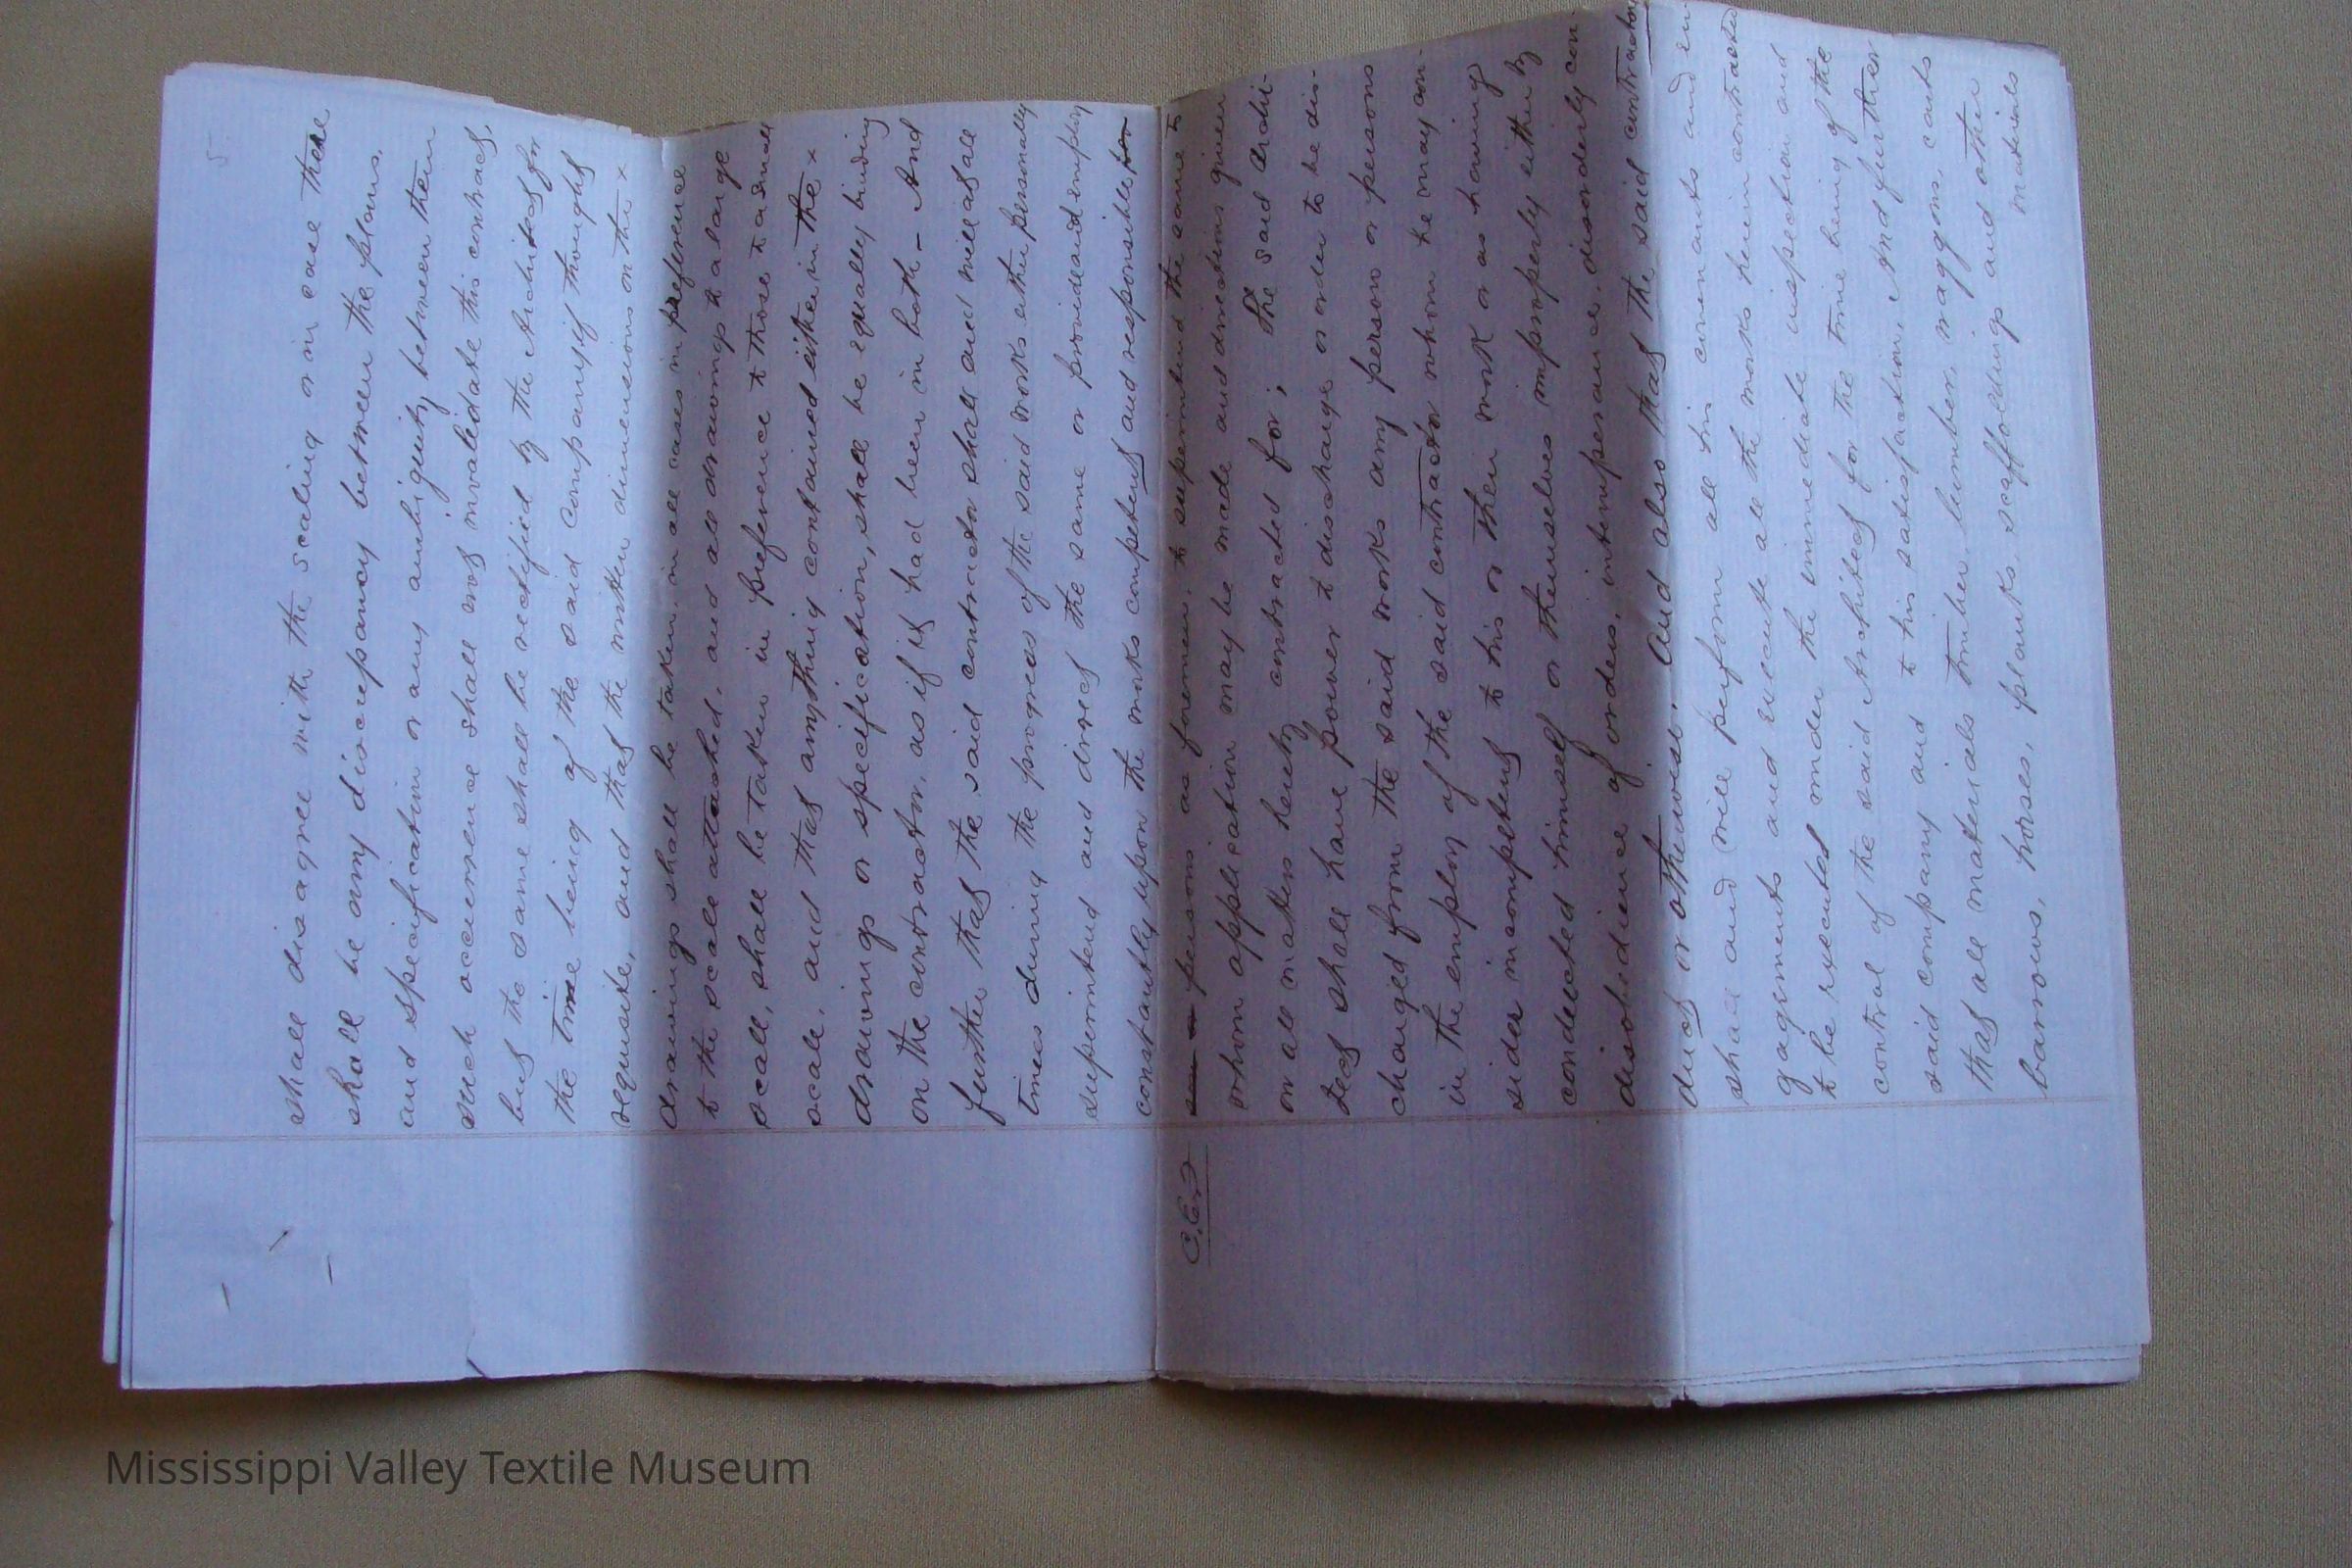 5.
shall disagree with the scaling or in case there
shall be any discrepancy between the plans,
and specification or any ambiguity between them
such occurrence shall not invalidate this contract,
but the same shall be rectified by the Architect for
the time being of the said company if thought
requisite, and that the written dimensions on the x
drawings shall be taken in all cases in preference
to the scale attached, and all drawings to a large
scale, shall be taken in preference to those to a small
scale, and that anything contained either in the x
drawings or specification, shall be equally binding
on the contractor, as if it had been in both – And
further that the said contractor shall and will at all
times during the progress of the said works either personally
superintend and direct the same or provide and employ
constantly upon the works competent and responsible
C.E.D persons as foremen, to superintend the same to
whom application may be made and directions given
on all matters hereby contracted for; the said Archi-
tect shall have power to discharge or order to be dis-
charged from the said works any person or persons
in the employ of the said contractor whom he may con-
sider incompetent to his or their work or as having
conducted himself or themselves improperly either by
disobedience of orders, intemperance, disorderly con-
duct or otherwise. And also that the said contractor
shall and will perform all his covenants and en-
gagements and execute all the works herein contracted
to be executed under the immediate inspection and
control of the said Architect for the time being of the
said company and to his satisfaction, And further
that all materials timber, lumber, waggons, carts
barrows, horses, planks, scaffoldings and other
materials
Mississippi Valley Textile Museum